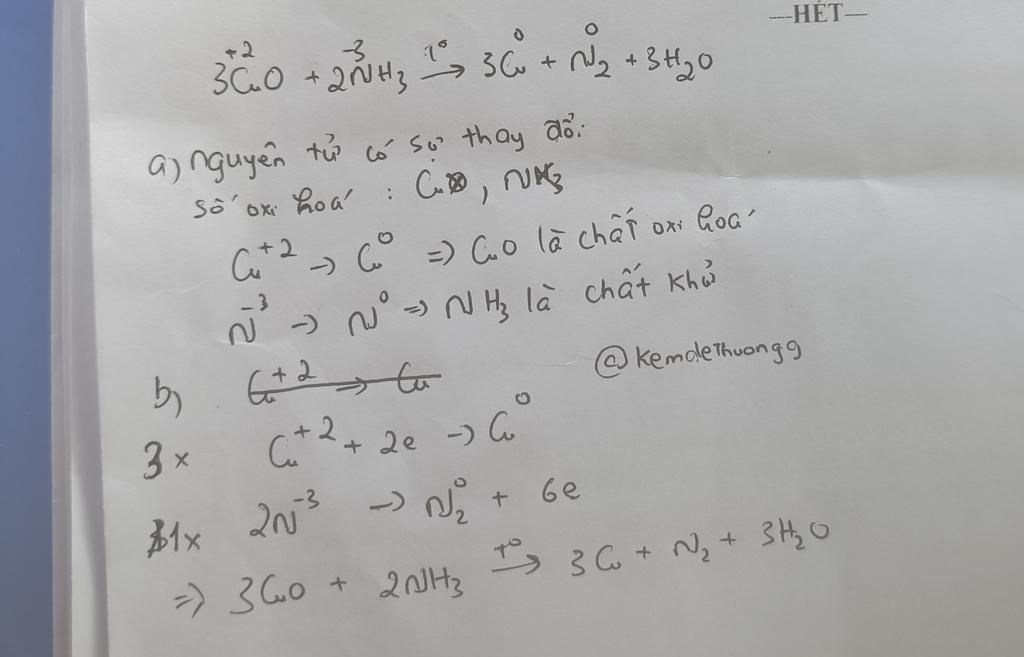 —HẾT—
3Cu⁺²O + 2N⁻³H₃ –t°→ 3Cu⁰ + N₂⁰ + 3H₂O
a) nguyên tử có sự thay đổi
số oxi hoá : Cu, N
Cu⁺² → Cu⁰ => CuO là chất oxi hoá
N⁻³ → N⁰ => NH₃ là chất khử
@kemdethuongg
b) Cu⁺² → Cu
3 x Cu⁺² + 2e → Cu⁰
1x 2N⁻³ → N₂⁰ + 6e
=> 3CuO + 2NH₃ –t°→ 3Cu + N₂ + 3H₂O